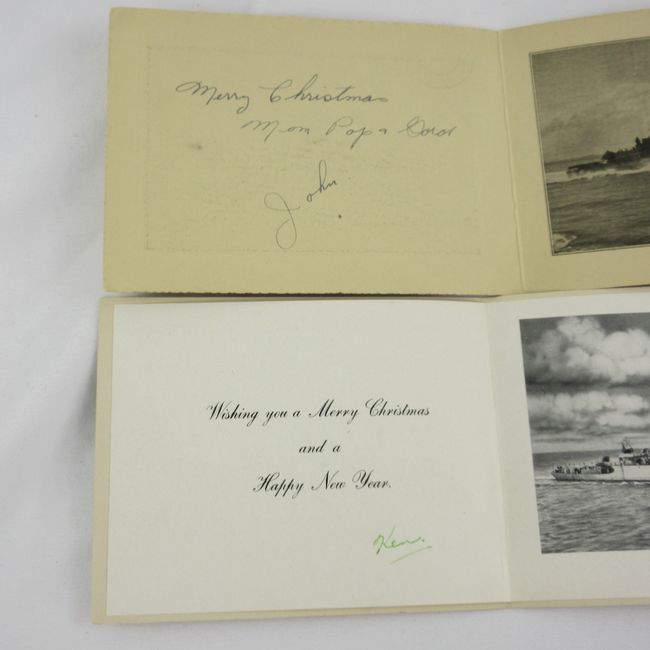 Merry Christmas
Mom Pop
John
Wishing you a Merry Christmas
and a
Happy New Year.
Ken.